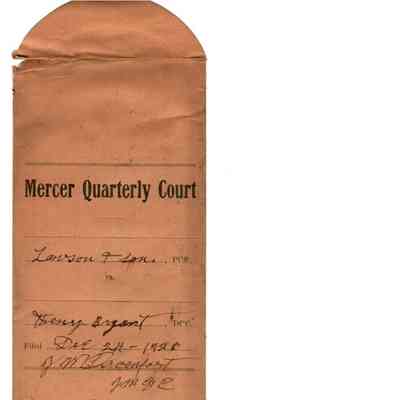 Mercer Quarterly Court
Lawson & Son. PCF.
vs.
Henry Bryant DCC.
Filed Dec 24-1928
J M Davenport